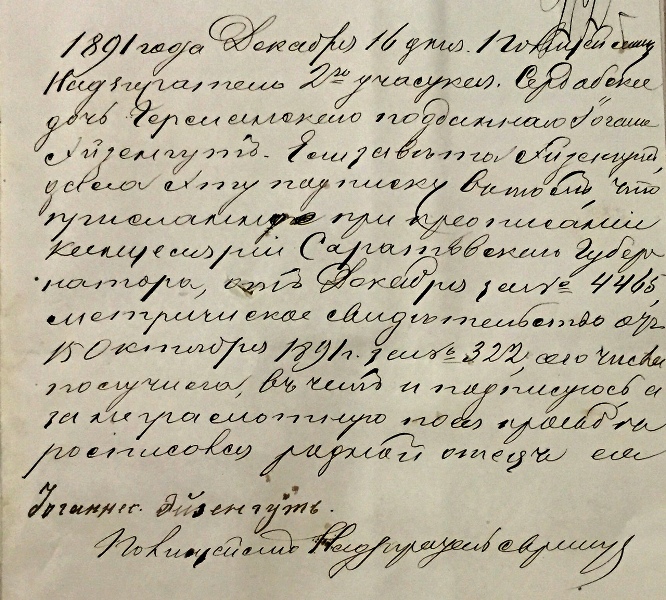 1891 года Декабря 16 дня. Полицейский
Надзиратель 2го участка.
дочь Германского подданнаго Іоганна
Айзенгутъ. Елизавета Айзенгутъ
дала эту подписку въ томъ, что
присланное при предписаніи
Канцеляріи Саратовскаго Губер
натора, отъ Декабря за № 4465
метрическое свидетельство отъ
15 Октября 1891 г. за № 322, сего числа
получила, въ чемъ и подписуюсь а
за неграмотную по её просьбѣ
росписовся родной отецъ ея
Іоганнес. Эйзенгутъ.
Полицейскій Надзиратель